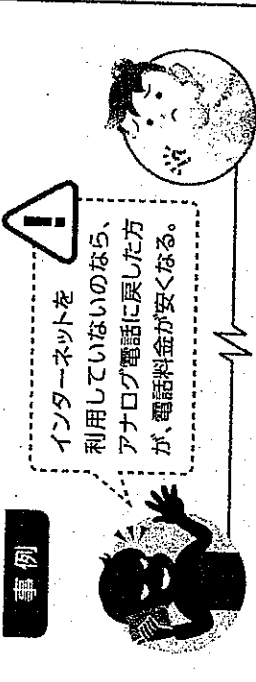 事例
インターネットを
利用していないのなら、
アナログ電話に戻した方
が、電話料金が安くなる。